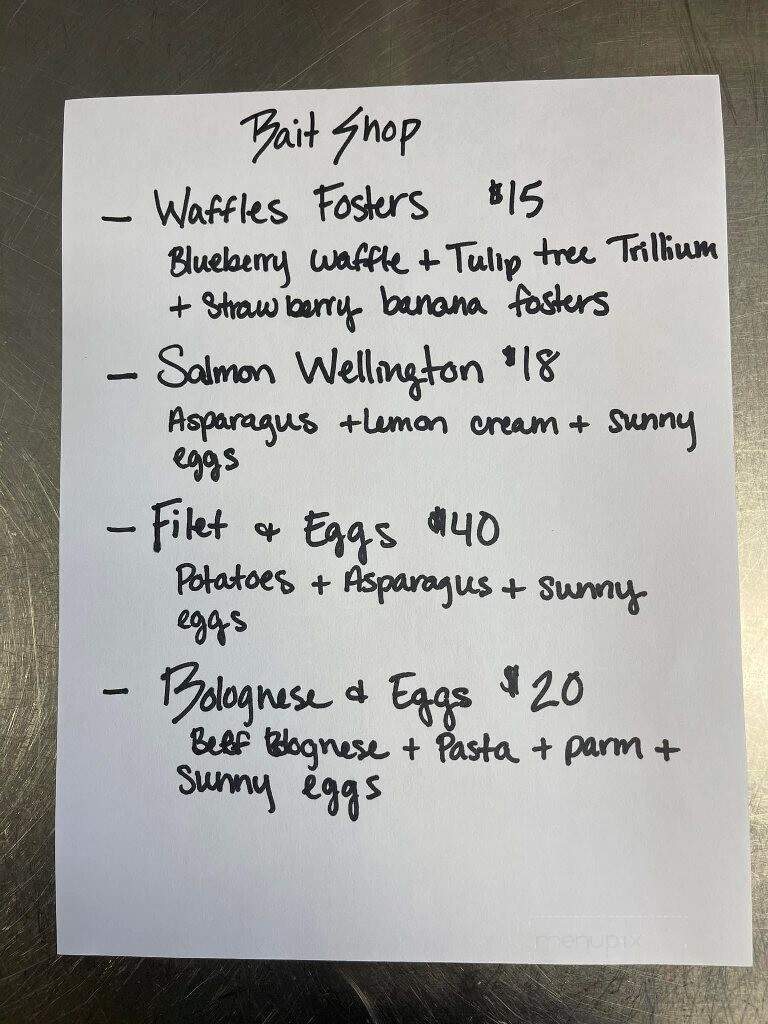 Bait Shop
- Waffles Fosters $15
Blueberry waffle + Tulip tree Trillium
+ Strawberry banana fosters
- Salmon Wellington $18
Asparagus + Lemon cream + sunny
eggs
- Filet & Eggs $40
Potatoes + Asparagus + sunny
eggs
- Bolognese & Eggs $20
Beef Blognese + Pasta + parm +
sunny eggs
menupix